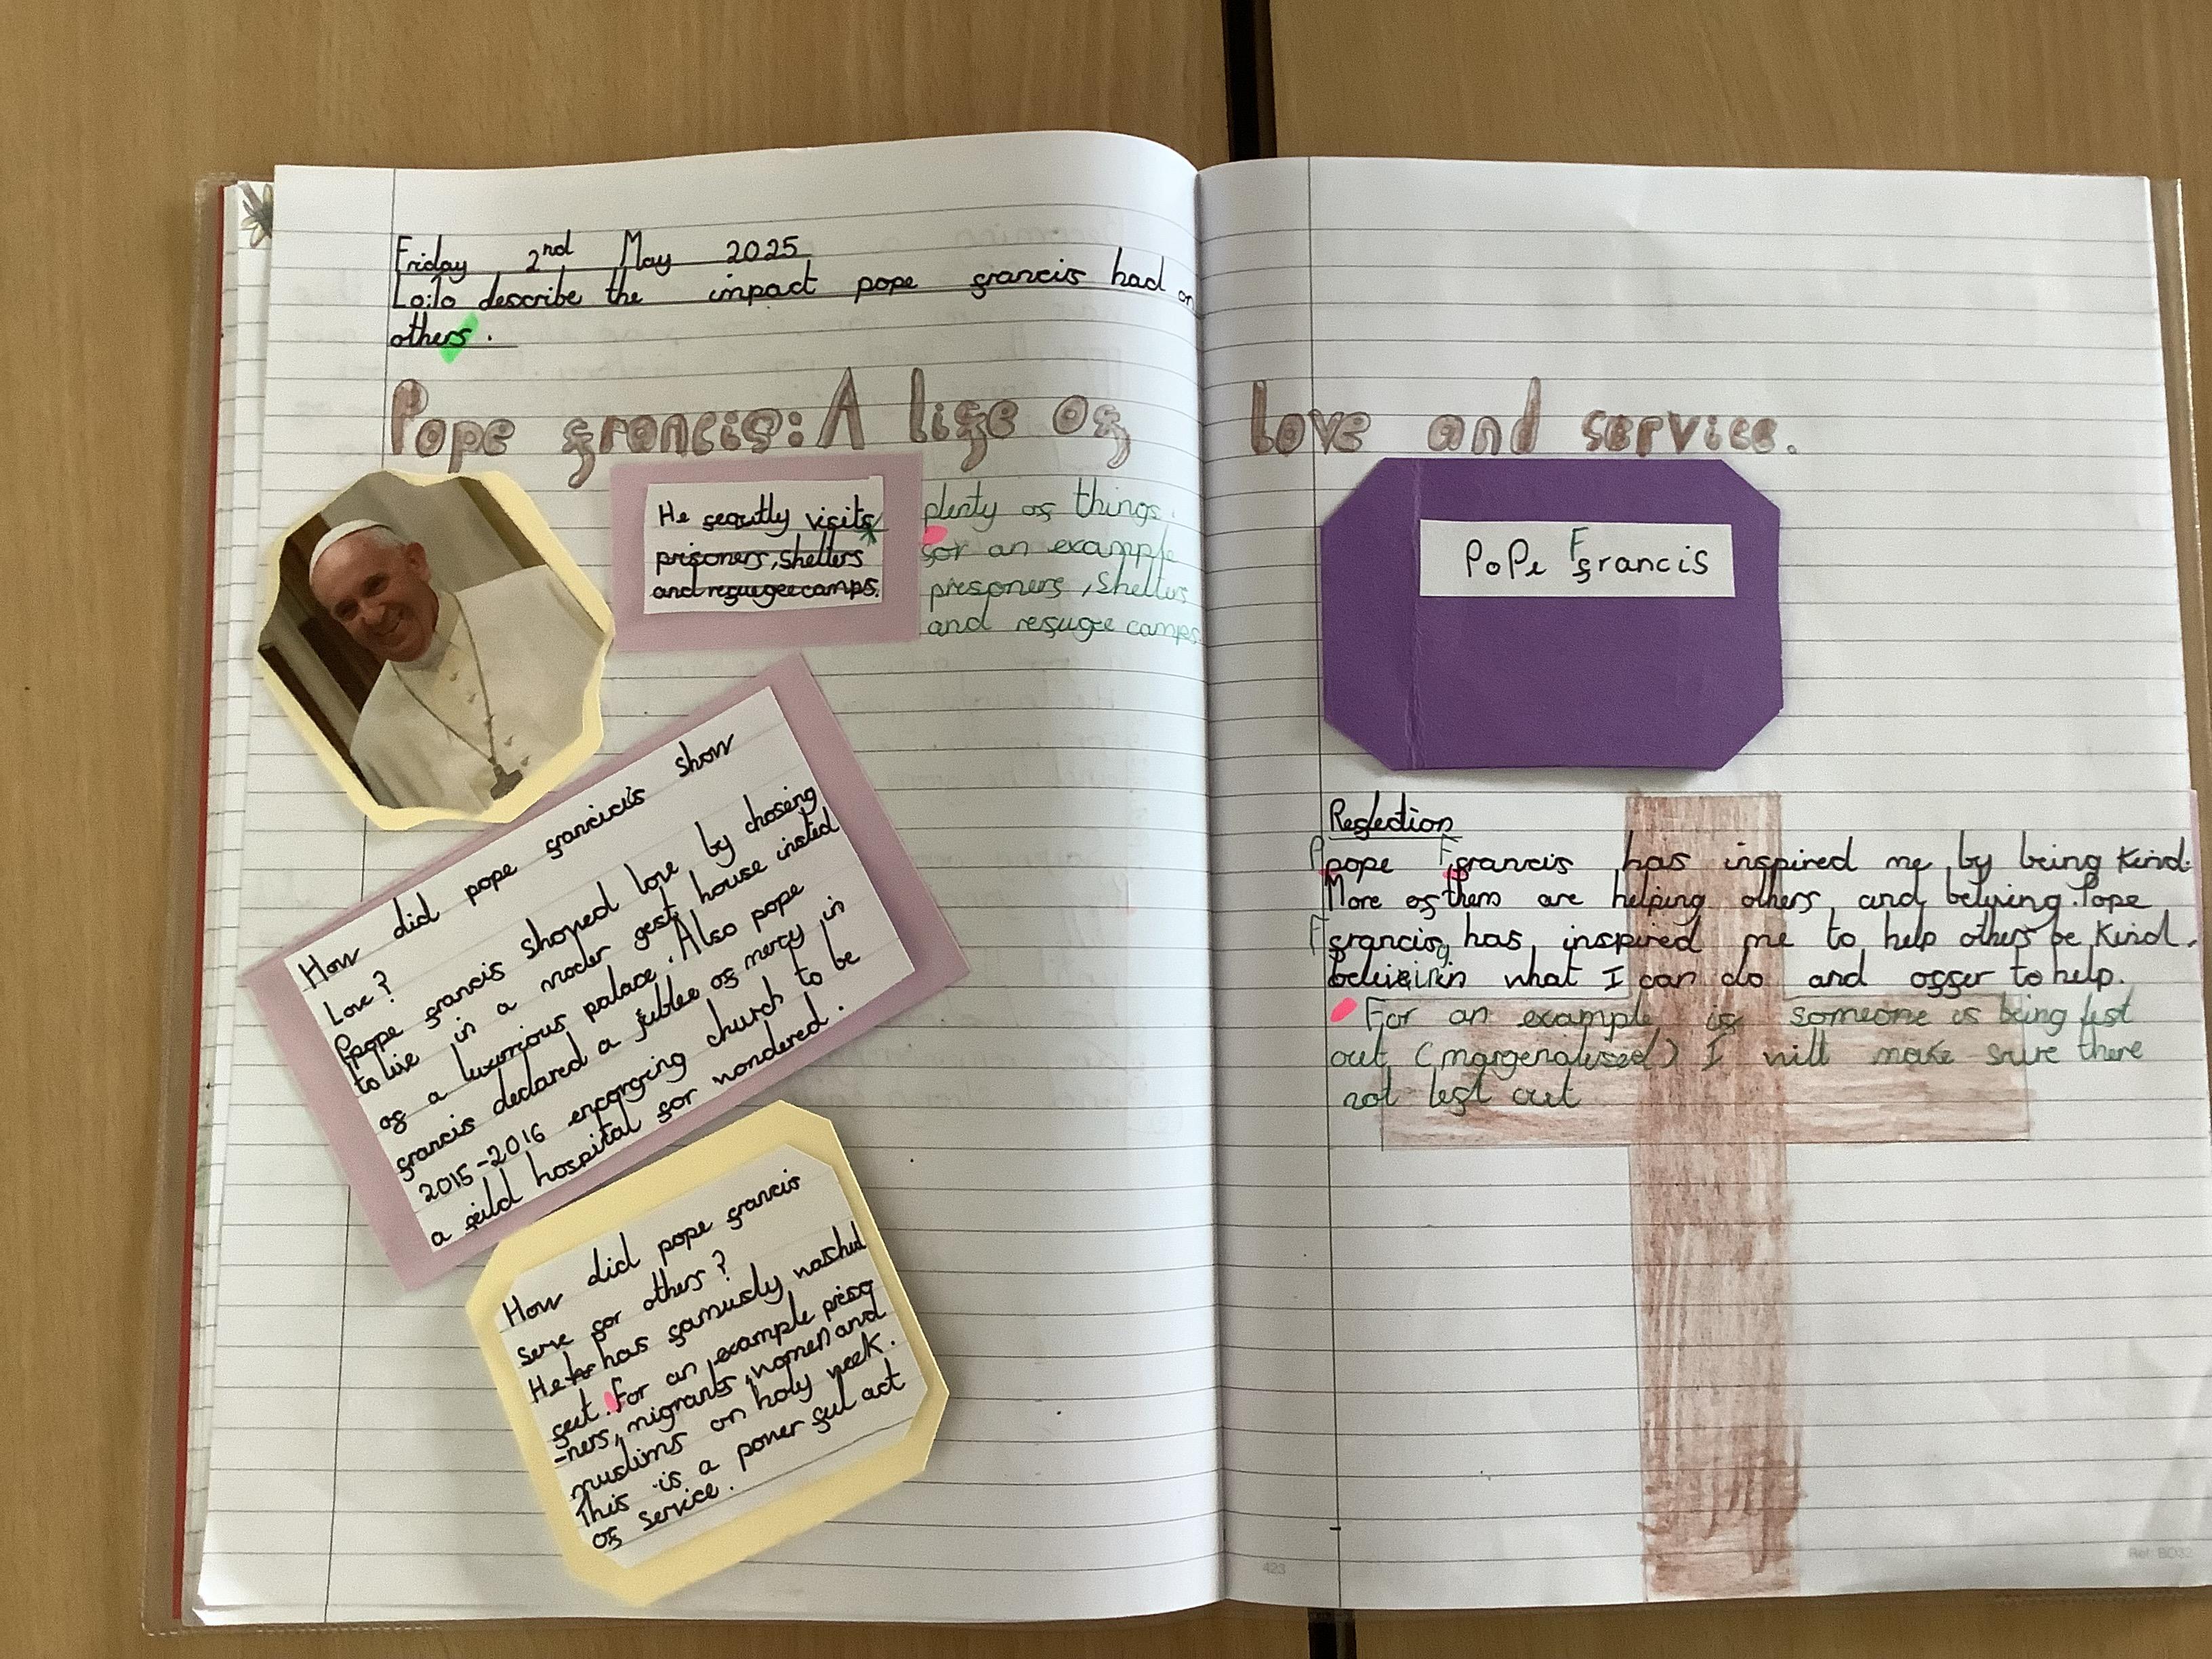 Friday 2nd May 2025
Lo: To describe the impact pope francis had on
others.
Pope francis: A life of love and service.
He frequtly visits
prisoners, shelters
and refuegee camps.
plenty of things.
for an example
presoners, shelters
and refugee camps
How did pope francicis show
Love?
Ppope francis showed love by chosing
to live in a moder gest house insted
of a luxurrious palace. Also pope
francis declared a jublee of mercy in
2015-2016 encorging church to be
a feild hospital for wondered.
How did pope francis
serve for others?
He has famusly washed
feet. For an example priso
-ners, migrants, women and
muslims on holy week.
This is a power ful act
of service.
PoPe Francis
Reflection
Ppope Francis has inspired me by being kind.
More of them are helping others and beliving. Pope
Francis, has, inspired me to help others be kind,
beliving what I can do and offer to help.
For an example if someone is being left
out (margenalused) I will make sure there
not left out
423